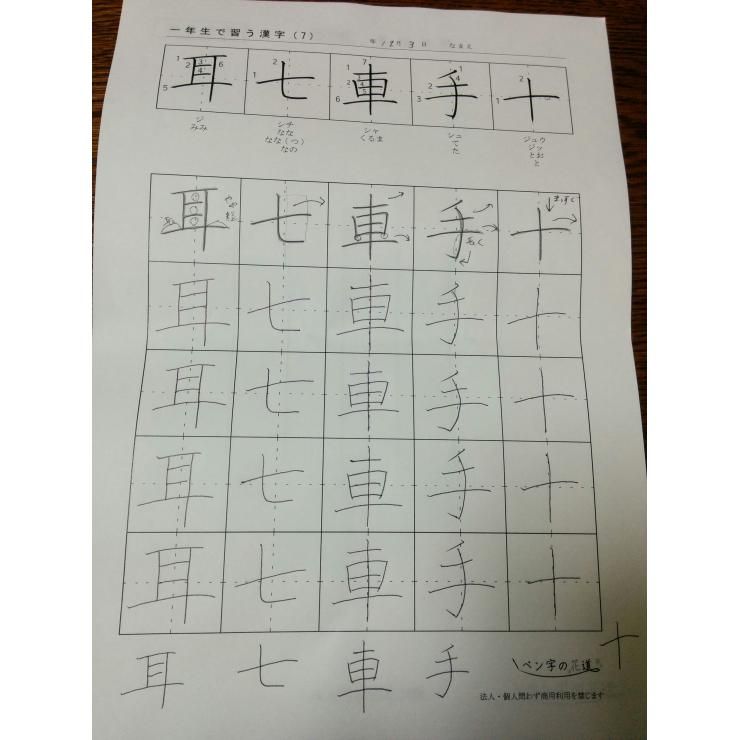 一年生で習う漢字（7）
年 12月 3日 なまえ
耳 七 車 手 十
1 2 3 4 5 6 1 2 1 2 3 4 5 6 7 1 2 3 4 1 2
ジ シチ シャ シュ ジュウ
みみ なな くるま て ジッ
なな（つ） た とお
なの と
耳 七 車 手 十
まっすぐ
耳 七 車 手 十
耳 七 車 手 十
耳 七 車 手 十
耳 七 車 手 十
耳 七 車 手 十
ペン字の花道
法人・個人問わず商用利用を禁じます